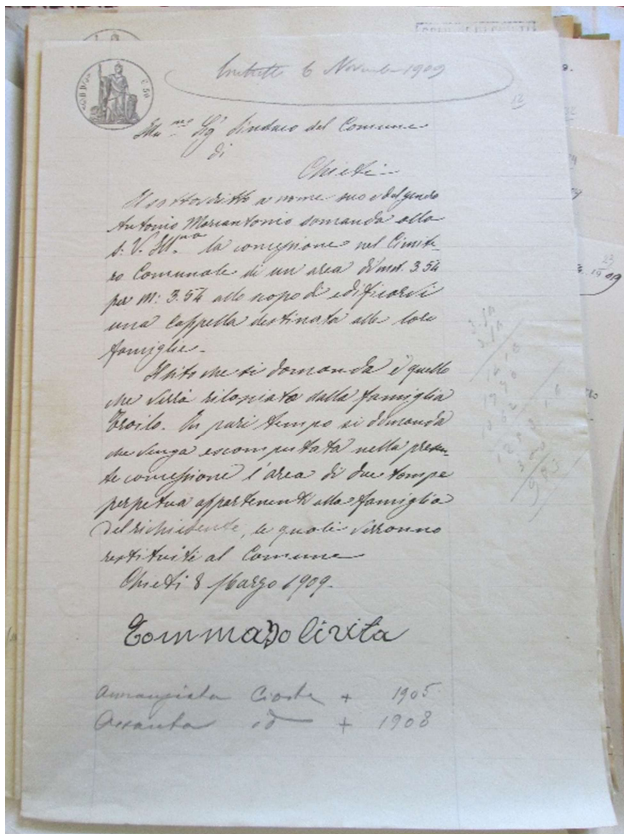 6 Novembre 1909
Ill.mo Sig Sindaco del Comune
di
Chieti
Il sottoscritto a nome suo e del genero
Antonio Mariantonio domanda alla
S. V. Ill.ma la concessione nel Cimite
ro Comunale di un area di mt. 3.54
per m: 3.54 allo scopo di edificarvi
una Cappella destinata alle loro
famiglie.
Il sito che si domanda è quello
che verrà rilasciato dalla famiglia
Troilo. In pari tempo si domanda
che venga escomputata nella presen
te concessione l'area di due tombe
perpetua appartenenti alla famiglia
del richiedente, le quali verranno
restituite al Comune
Chieti 8 Marzo 1909.
Tommaso Civita
+ 1905
id + 1908